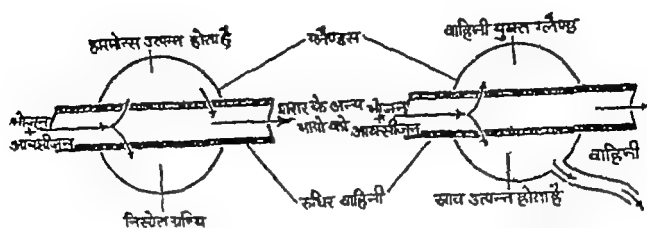 हारमोन्स उत्पन्न होता है
ग्लैण्डस
वाहिनी युक्त ग्लैण्ड
भोजन
+
आक्सीजन
शरीर के अन्य
भागो को
भोजन
+
आक्सीजन
वाहिनी
निस्रोत ग्रन्थि
रुधिर वाहिनी
स्राव उत्पन्न होता है